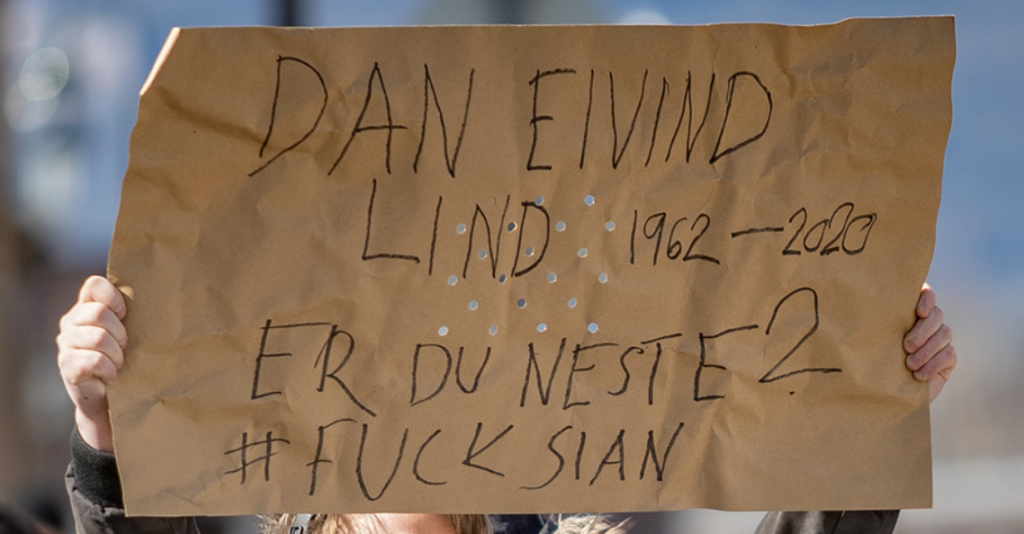 DAN EIVIND
LIND 1962-2020
ER DU NESTE?
#FUCK SIAN